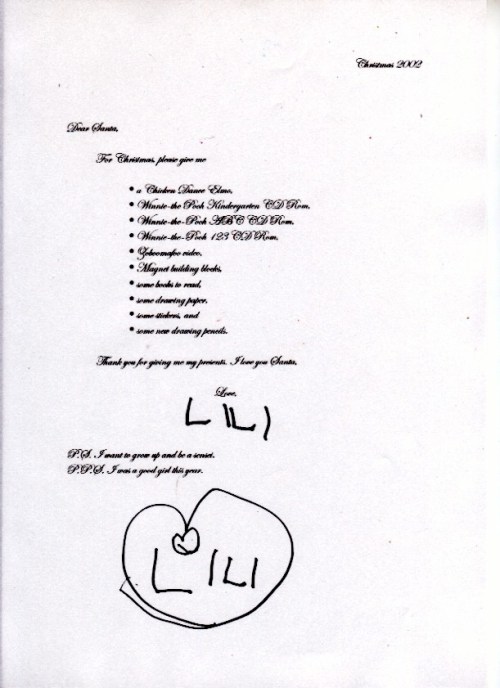 Christmas 2002
Dear Santa,
For Christmas, please give me
• a Chicken Dance Elmo,
• Winnie-the Pooh Kindergarten CD Rom,
• Winnie-the-Pooh ABC CD Rom,
• Winnie-the-Pooh 123 CD Rom,
• Zoboomafoo video,
• Magnet building blocks,
• some books to read,
• some drawing paper,
• some stickers, and
• some new drawing pencils.
Thank you for giving me my presents. I love you Santa,
Love,
LILI
P.S. I want to grow up and be a sensei.
P.P.S. I was a good girl this year.
LILI